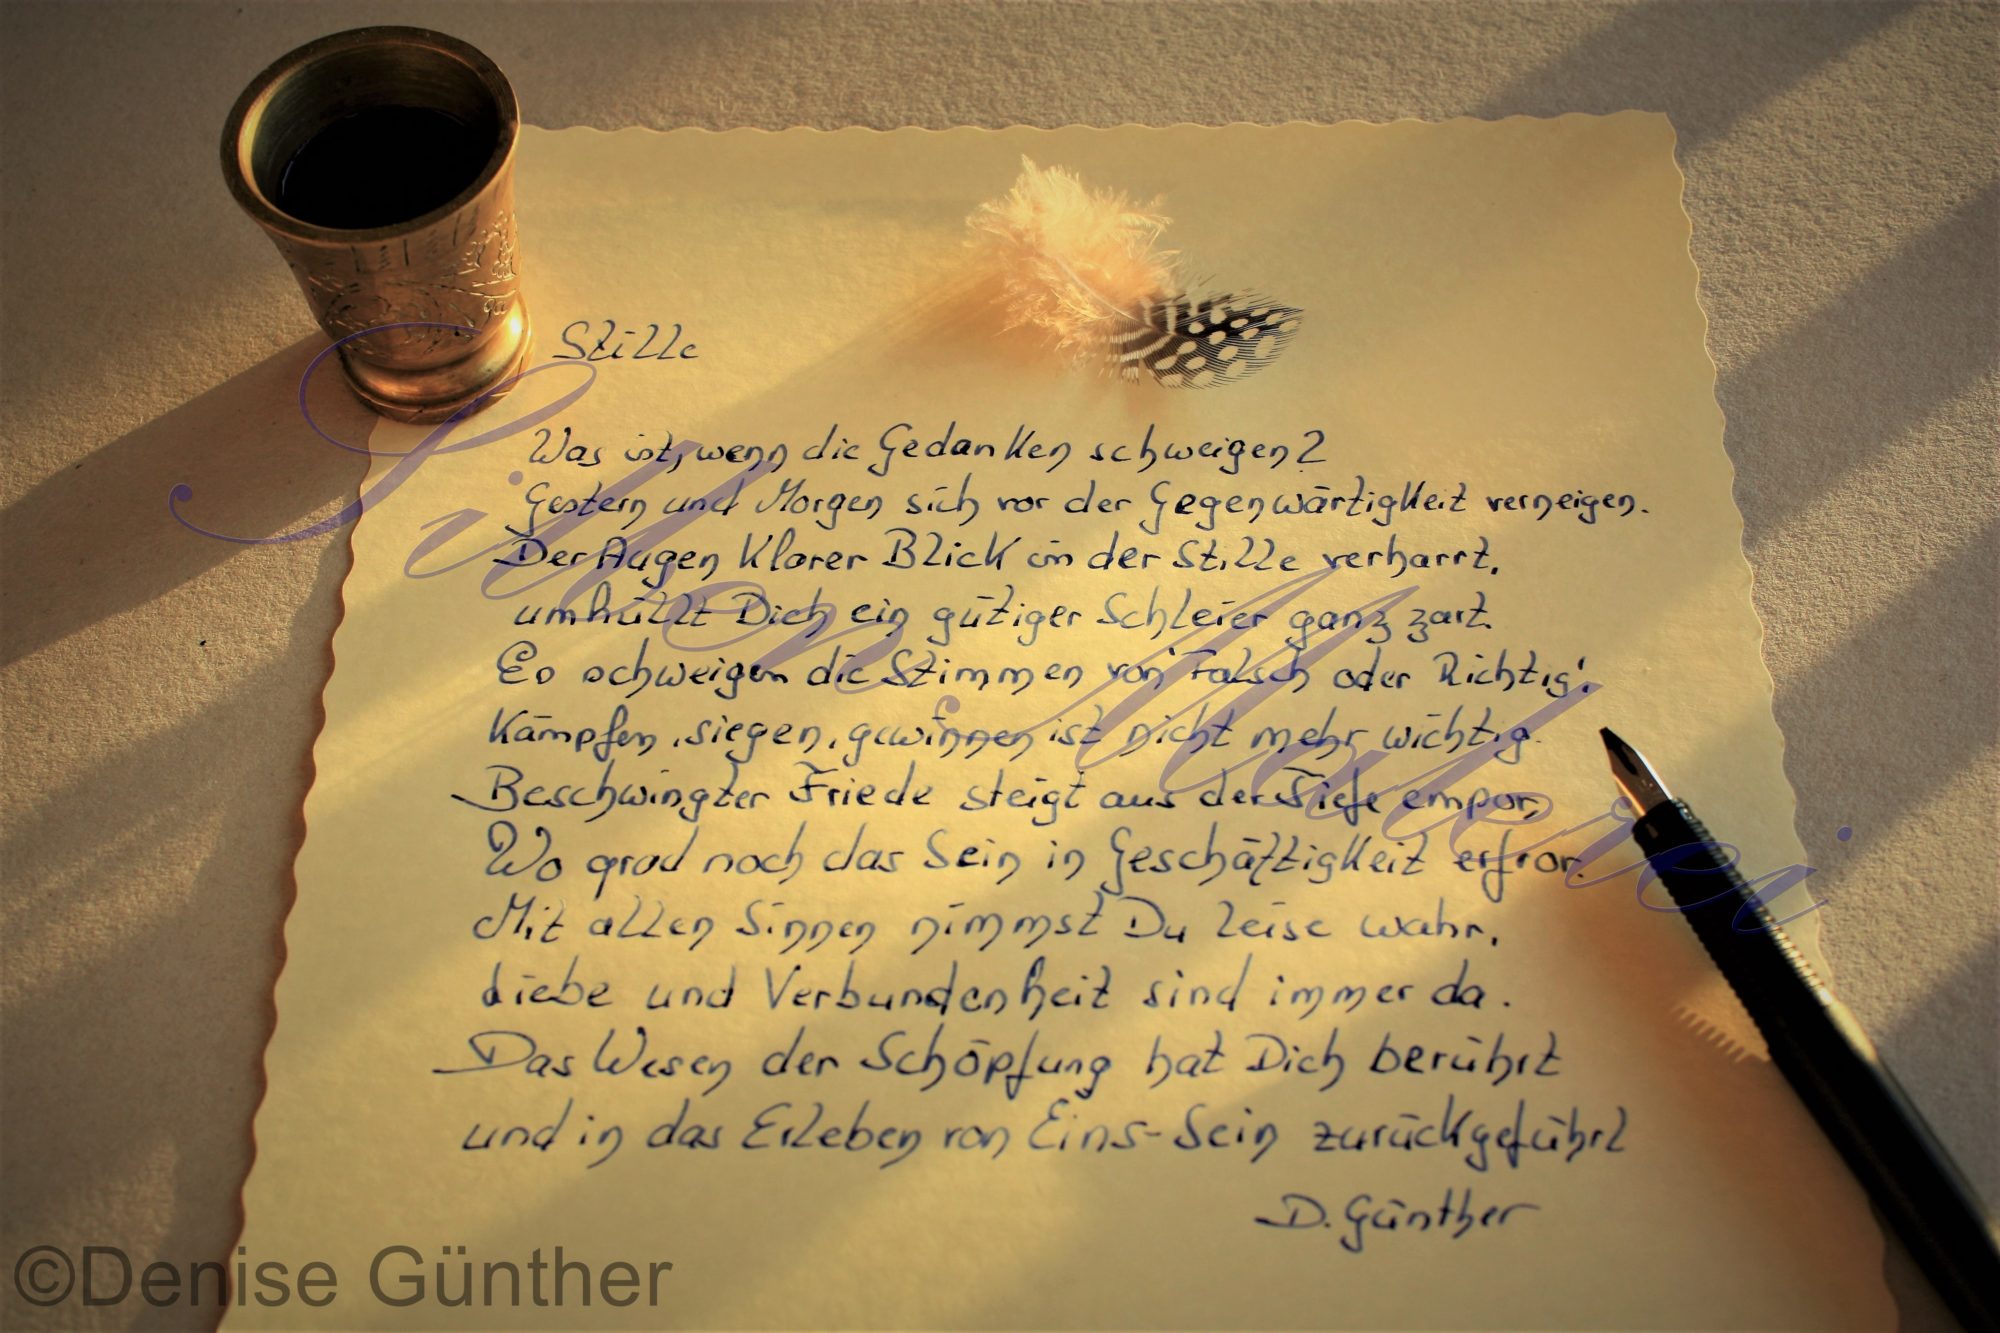 Stille
Was ist, wenn die Gedanken schweigen?
Gestern und Morgen sich vor der Gegenwärtigkeit verneigen.
Der Augen klarer Blick in der Stille verharrt,
umhüllt Dich ein gütiger Schleier ganz zart.
Es schweigen die Stimmen von 'Falsch oder Richtig'.
Kämpfen, siegen, gewinnen ist nicht mehr wichtig.
Beschwingter Friede steigt aus der Tiefe empor,
Wo grad noch das Sein in Geschäftigkeit erfror.
Mit allen Sinnen nimmst Du leise wahr,
Liebe und Verbundenheit sind immer da.
Das Wesen der Schöpfung hat Dich berührt
und in das Erleben von Eins-Sein zurückgeführt
D. Günther
©Denise Günther